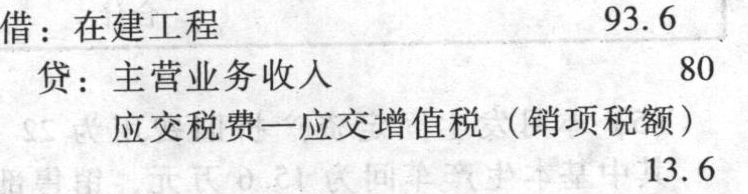 借：在建工程 93.6
贷：主营业务收入 80
应交税费—应交增值税（销项税额）
13.6